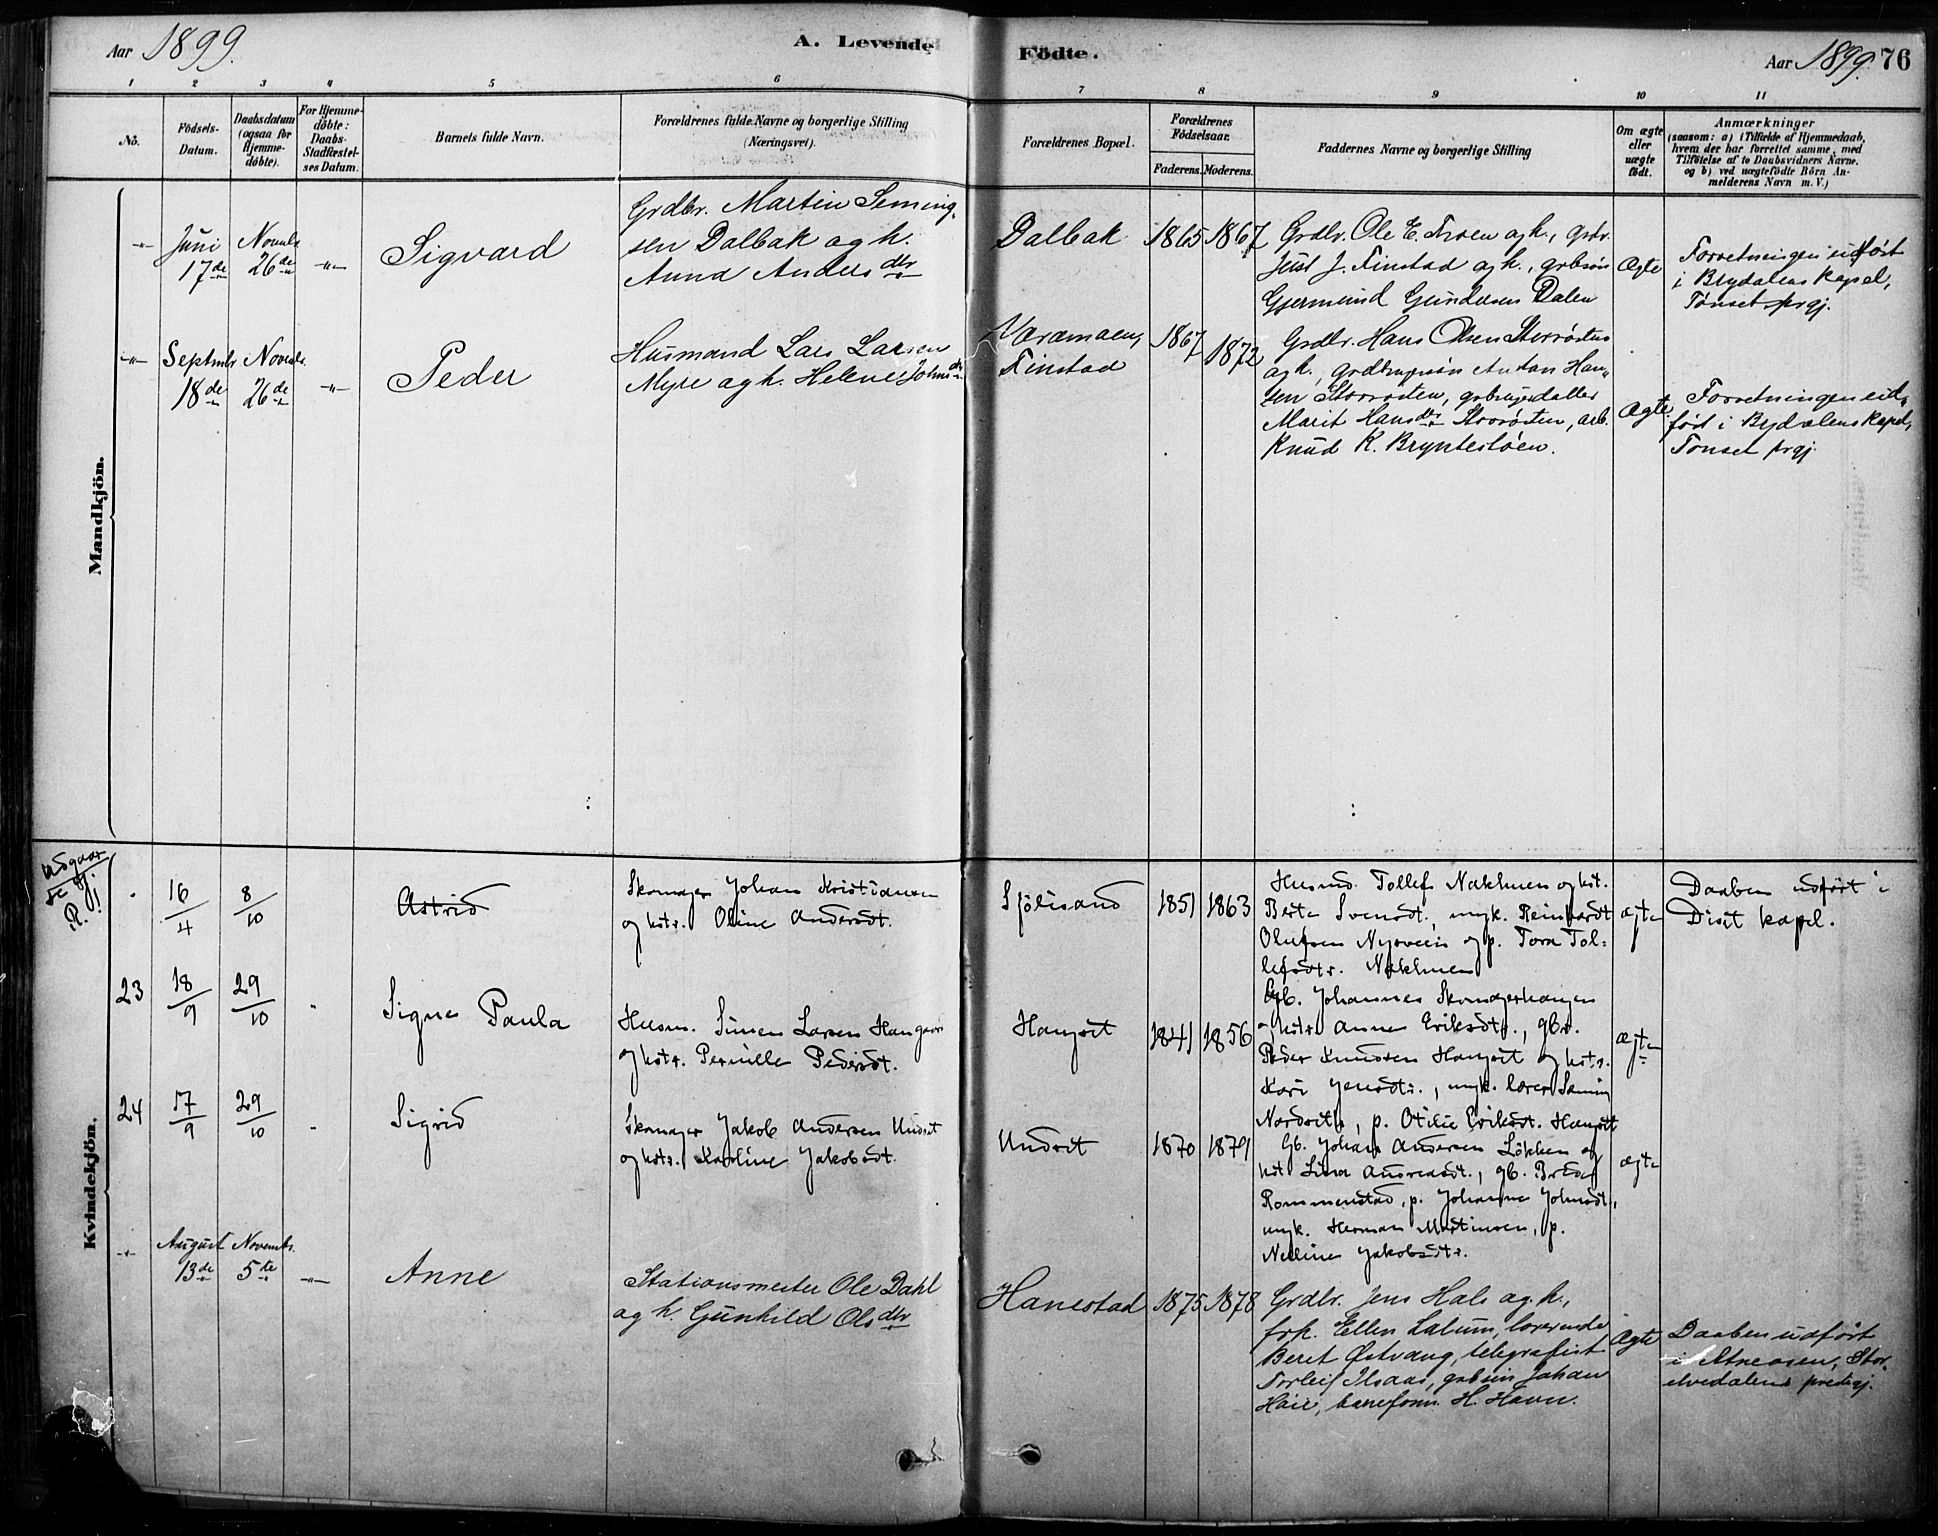 Aar 1899.
A. Levende Födte.
Aar 1899. 76
1 2 3 4 5 6 7 8 9 10 11
No.
Födsels-
Datum.
Daabsdatum
(ogsaa for
Hjemme-
döbte).
For Hjemme-
döbte:
Daabs-
Stadfæstel-
ses Datum.
Barnets fulde Navn.
Forældrenes fulde Navne og borgerlige Stilling
(Næringsvei).
Forældrenes Bopæl.
Forældrenes
Födselsaar.
Faderens. Moderens.
Faddernes Navne og borgerlige Stilling
Om ægte
eller
uægte
födt.
Anmærkninger
(saasom: a) i Tilfælde af Hjemmedaab,
hvem der har forrettet samme, med
Tilföielse af to Daabsvidners Navne,
og b) ved uægtefödte Börn An-
melderens Navn m. V.)
Mandkjön.
-"-
Juni
17de
Novmb.
26de
-"-
Sigvard
Grdbr. Martin Seming-
sen Dalbak og h.
Anna Andersdtr
Dalbak
1865
1867
Grdbr. Ole E. Troen og h., grdr.
Just J. Finstad og h., grbsøn
Gjermund Gundersen Dalen
Ægte
Forretningen udført
i Brydalens kapel,
Tønset prgj.
-"-
Septmbr
18de
Novmb.
26de
-"-
Peder
Husmand Lars Larsen
Myre og h. Helene Johnsdtr
Væramoen,
Finstad
1867
1872
Grdbr. Hans Olsen Storrøsten
og h., grdbrugersøn Anton Han-
sen Storrøsten, gbrugerdatter
Marit Hansdtr Storrøsten, arb.
Knud K. Bryntestøen.
Ægte
Forretningen ud-
ført i Brydalens kapel,
Tønset prgj.
Kvindekjön.
Udgaar
R.!!
16/4
8/10
Astrid
Skomager Johan Kristiansen
og hstr. Oline Andersdt.
Sjølisand
1851
1863
Husmd. Tollef Nækhnen og hst.
Berte Svensdt., ungk. Reinhardt
Olufsen Nysveen og p. Tora Tol-
lefsdtr.
ægte
Daaben udført i
Diset kapel.
23
18/9
29/10
Signe Paula
Husm. Simen Larsen Hangaar
og hstr. Pernille Pedersdt.
Hangset
1841
1856
Gb. Johannes Skomagerhaugen
og hstr Anne Eriksdtr., gbr.
Peder Knudsen Hangset og hstr.
Kari Jensdtr., ungk. lærer Seming
Nordset, p. Otilie Eriksdt. Hangset
ægte
24
17/9
29/10
Sigrid
Skomager Jakob Andersen Undset
og hstr. Karoline Jakobsdt.
Undset
1870
1879
Gb. Johan Andersen Løkken og
hst Lina Andreasdt., gb.
Rommenstad, p. Johanne Johnsdt.,
ungk. Herman Martinsen, p.
Nelline Jakobsdtr.
ægte
-"-
August
13de
Novembr.
5te
-"-
Anne
Stationsmester Ole Dahl
og h. Gunhild Olsdtr
Hanestad
1875
1878
Grdbr. Jens Hals og h.,
frk. Ellen Lalum, lærerinde
Beret Østvang, telegrafist
Torleif Ilsaas, grbsøn Johan
Høie, baneform. H. Havn.
Ægte
Daaben udført
i Atneosen, Stor-
elvedalens prestgj.